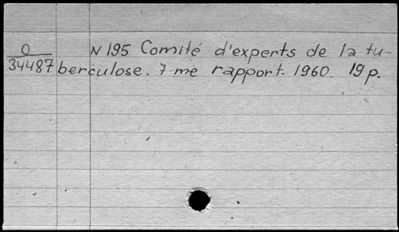 O N 195 Comité d'experts de la tu-
34487 berculose. 7-me rapport. 1960. 19 p.